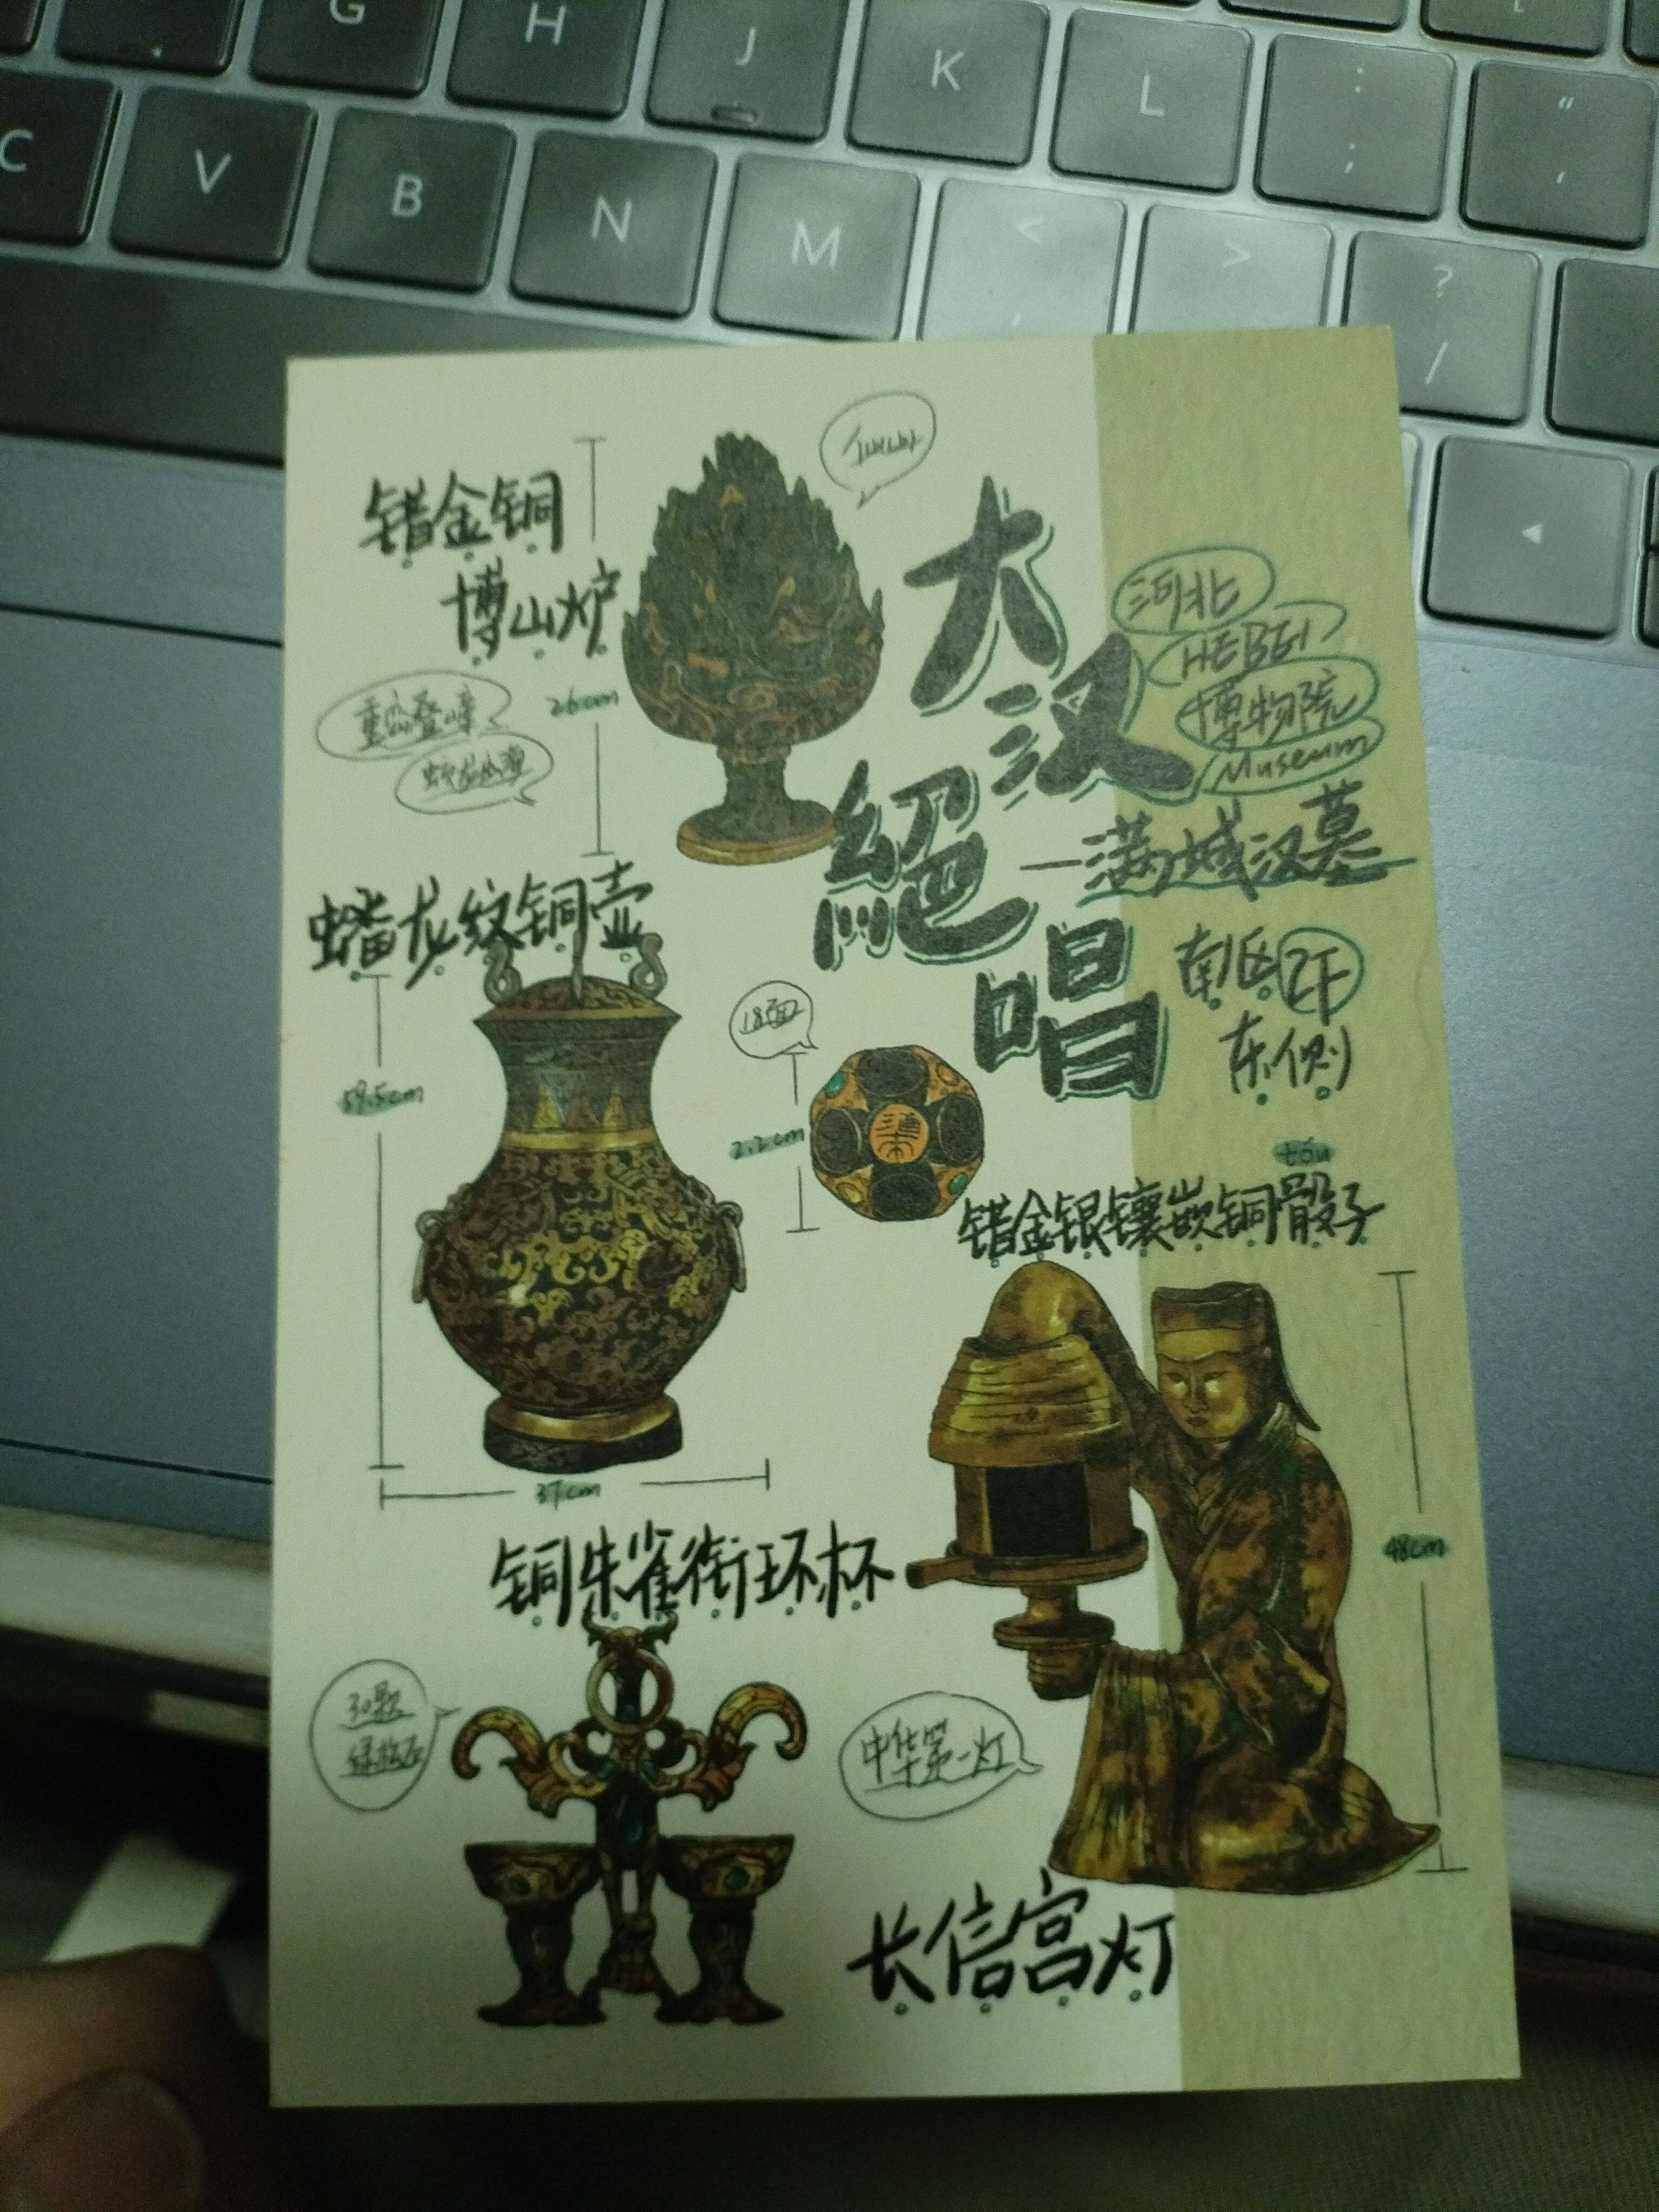 G H J K L : ;
" '
C V B N M < , > ? /
错金铜
博山炉
26cm
重峦叠嶂
大汉
絕唱
河北
HEBEI
博物院
Museum
—满城汉墓
南区2F
东侧
蟠龙纹铜壶
59.5cm
37cm
18面
2.2cm
tóu
错金银镶嵌铜骰子
48cm
铜朱雀衔环杯
30颗
绿松石
中华第一灯
长信宫灯